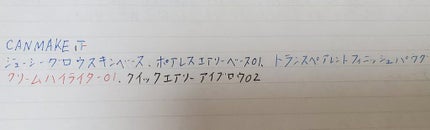 CANMAKE の
ジューシーグロウスキンベース、ポアレスエアリーベース01、トランスペアレントフィニッシュパウダ
クリームハイライター01、クイックエアリーアイブロウ02